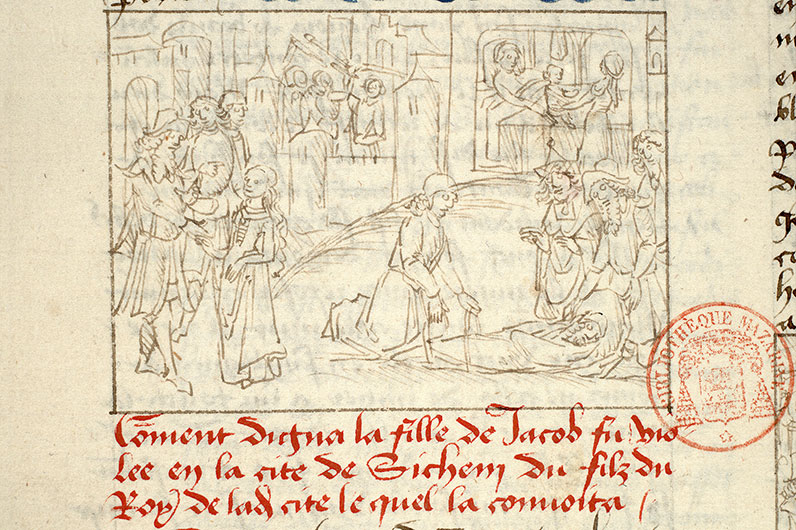 BIBLIOTHEQUE MAZARINE
Coment digna la fille de Jacob fu vio
lee en la cite de Sichem du filz du
Roy de lad cite le quel la convoita